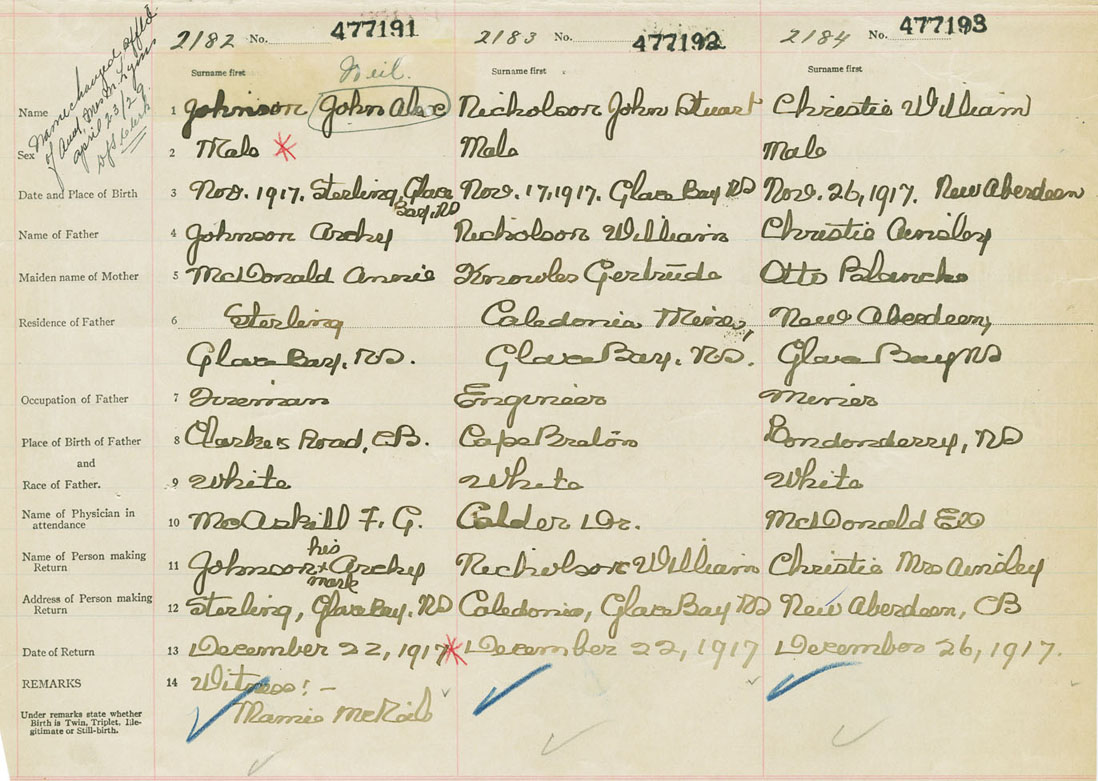 2182 No. 477191 2183 No. 477192 2184 No. 477193
Name changed affid.
of Aunt, Mrs M.
april 23/29
Surname first Surname first Surname first
Neil.
Name 1 Johnson John Alec Nicholson John Stuart Christie William
Sex 2 Male Male Male
Date and Place of Birth 3 Nov. 1917. Sterling, Glace Bay, NS Nov. 17, 1917. Glace Bay NS Nov. 26, 1917. New Aberdeen
Name of Father 4 Johnson Archy Nicholson William Christie Ainsley
Maiden name of Mother 5 McDonald Annie Knowles Gertrude Otto Blanche
Residence of Father 6 Sterling Caledonia Mines, New Aberdeen,
Glace Bay, NS. Glace Bay, NS. Glace Bay NS
Occupation of Father 7 Fireman Engineer Miner
Place of Birth of Father 8 Clarke's Road, CB. Cape Breton Londonderry, NS
and
Race of Father. 9 White White White
Name of Physician in attendance 10 McAskill F. G. Calder Dr. McDonald ED
Name of Person making Return 11 Johnson his x mark Archy Nicholson William Christie Mrs Ainsley
Address of Person making Return 12 Sterling, Glace Bay, NS Caledonia, Glace Bay NS New Aberdeen, CB
Date of Return 13 December 22, 1917 December 22, 1917 December 26, 1917.
REMARKS 14 Witness: –
Mamie McNeil
Under remarks state whether
Birth is Twin, Triplet, Ille-
gitimate or Still-birth.